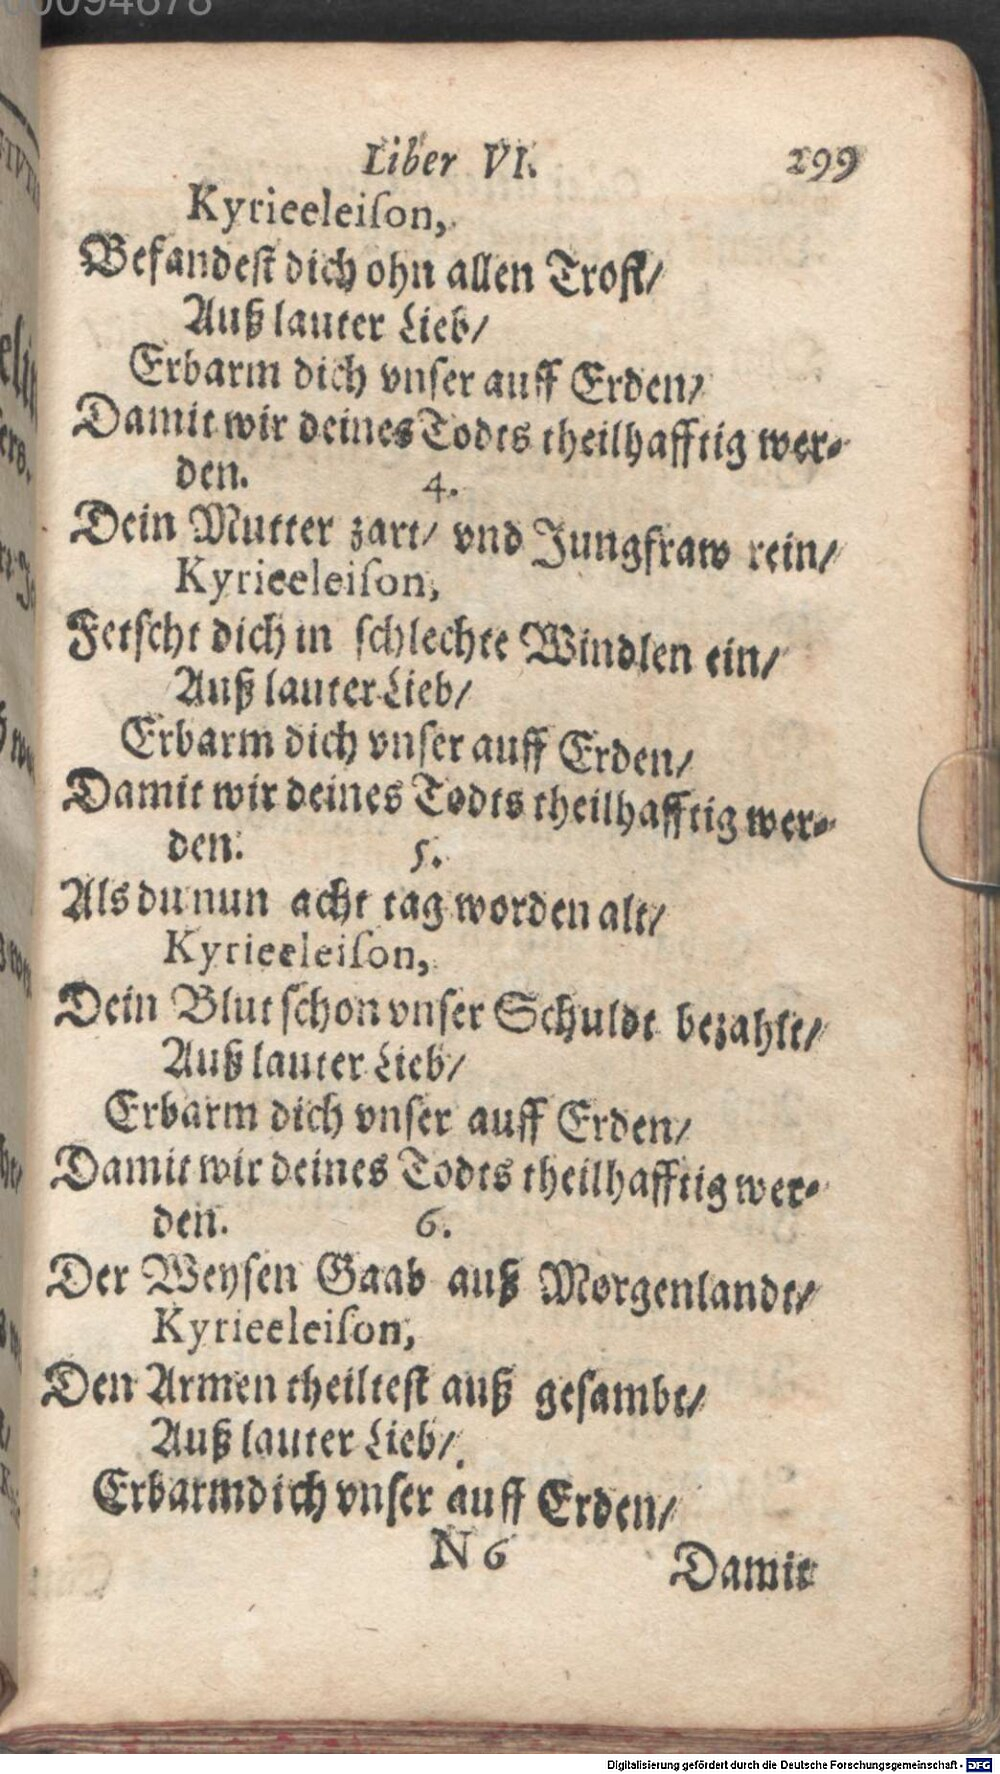 00094678
Liber VI. 299
Kyrieeleiſon,
Befandeſt dich ohn allen Troſt/
Auß lauter Lieb/
Erbarm dich vnſer auff Erden/
Damit wir deines Todts theilhafftig wer-
den.
4.
Dein Mutter zart/ vnd Jungfraw rein/
Kyrieeleiſon,
Fetſcht dich in ſchlechte Windlen ein/
Auß lauter Lieb/
Erbarm dich vnſer auff Erden/
Damit wir deines Todts theilhafftig wer-
den.
5.
Als du nun acht tag worden alt/
Kyrieeleiſon,
Dein Blut ſchon vnſer Schuldt bezahlt/
Auß lauter Lieb/
Erbarm dich vnſer auff Erden/
Damit wir deines Todts theilhafftig wer-
den.
6.
Der Weyſen Gaab auß Morgenlandt/
Kyrieeleiſon,
Den Armen theilteſt auß geſambt/
Auß lauter Lieb/
Erbarm dich vnſer auff Erden/
N 6
Damit
Digitalisierung gefördert durch die Deutsche Forschungsgemeinschaft - DFG